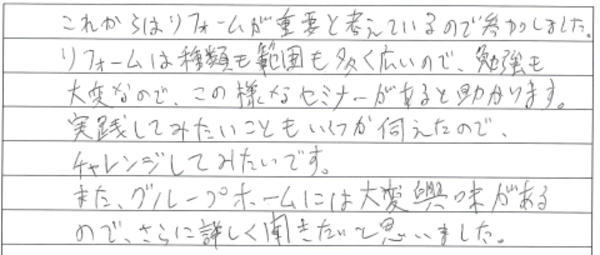 これからはリフォームが重要と考えているので参加しました。
リフォームは種類も範囲も多く広いので、勉強も
大変なので、この様なセミナーがあると助かります。
実践してみたいこともいくつか伺えたので、
チャレンジしてみたいです。
また、グループホームには大変興味がある
ので、さらに詳しく聞きたいと思いました。